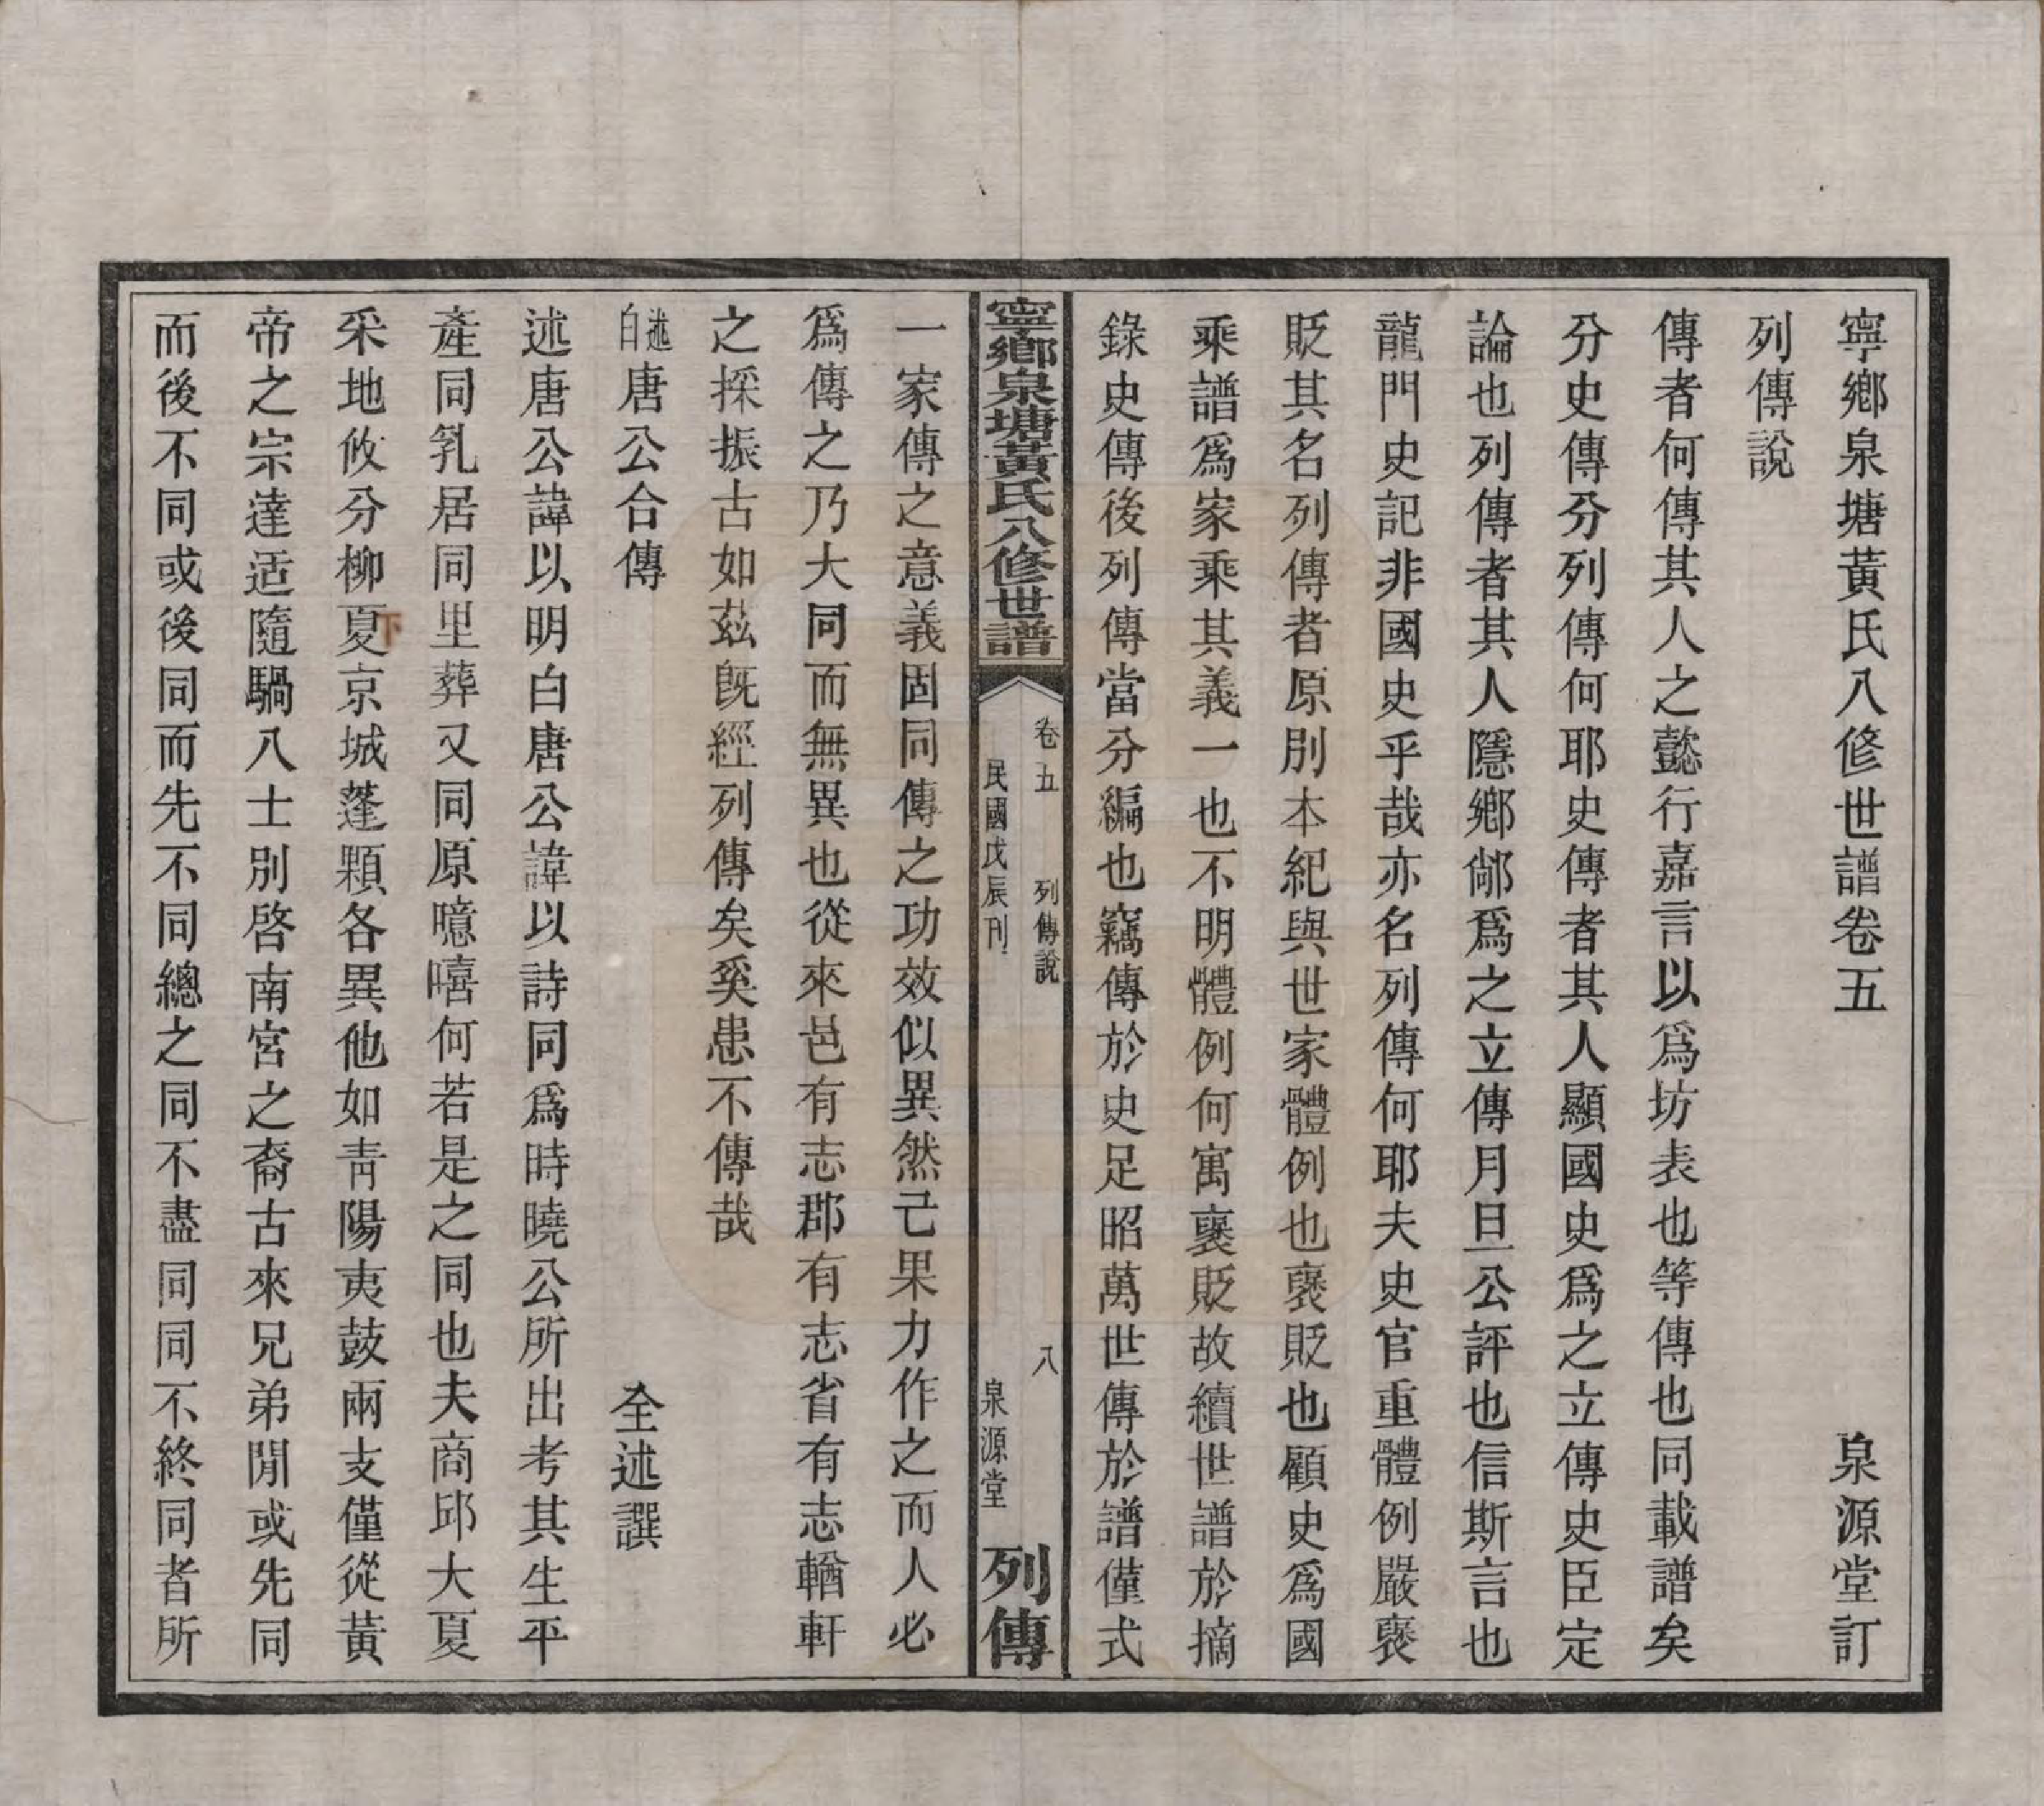 寧鄉泉塘黃氏八修世譜卷五　泉源堂訂
列傳說
傳者何傳其人之懿行嘉言以爲坊表也等傳也同載譜矣
分史傳分列傳何耶史傳者其人顯國史爲之立傳史臣定
論也列傳者其人隱鄉鄰爲之立傳月旦公評也信斯言也
龍門史記非國史乎哉亦名列傳何耶夫史官重體例嚴褒
貶其名列傳者原別本紀與世家體例也褒貶也顧史爲國
乘譜爲家乘其義一也不明體例何寓褒貶故續世譜於摘
錄史傳後列傳當分編也竊傳於史足昭萬世傳於譜僅式
寧鄉泉塘黃氏八修世譜
卷五　列傳說　八
民國戊辰刊　泉源堂
列傳
一家傳之意義固同傳之功效似異然己果力作之而人必
爲傳之乃大同而無異也從來邑有志郡有志省有志輶軒
之採振古如茲旣經列傳矣奚患不傳哉
述白唐公合傳　全述譔
述唐公諱以明白唐公諱以詩同爲時曉公所出考其生平
產同乳居同里葬又同原噫嘻何若是之同也夫商邱大夏
采地攸分柳夏京城蓬顆各異他如靑陽夷鼓兩支僅從黃
下
帝之宗達适隨騧八士別啓南宮之裔古來兄弟閒或先同
而後不同或後同而先不同總之同不盡同同不終同者所